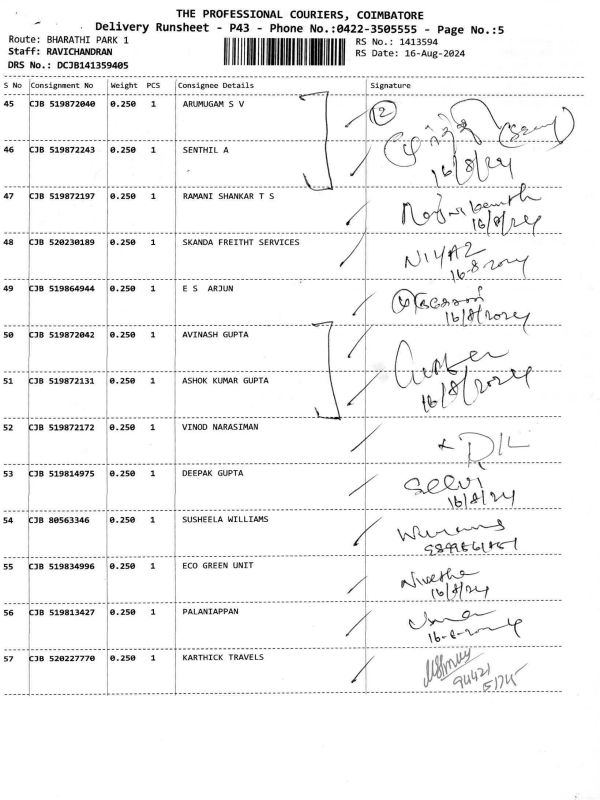 THE PROFESSIONAL COURIERS, COIMBATORE
Delivery Runsheet - P43 - Phone No.:0422-3505555 - Page No.:5
Route: BHARATHI PARK 1
Staff: RAVICHANDRAN
DRS No.: DCJB141359405
RS No.: 1413594
RS Date: 16-Aug-2024
S No Consignment No Weight PCS Consignee Details Signature
45 CJB 519872040 0.250 1 ARUMUGAM S V 2
46 CJB 519872243 0.250 1 SENTHIL A 16/8/24
47 CJB 519872197 0.250 1 RAMANI SHANKAR T S 16/8/24
48 CJB 520230189 0.250 1 SKANDA FREITHT SERVICES NIYAZ
16-8-2024
49 CJB 519864944 0.250 1 E S ARJUN
16/8/2024
50 CJB 519872042 0.250 1 AVINASH GUPTA
51 CJB 519872131 0.250 1 ASHOK KUMAR GUPTA 16/8/2024
52 CJB 519872172 0.250 1 VINOD NARASIMAN
53 CJB 519814975 0.250 1 DEEPAK GUPTA Selvi
16/8/24
54 CJB 80563346 0.250 1 SUSHEELA WILLIAMS
55 CJB 519834996 0.250 1 ECO GREEN UNIT Nivetha
16/8/24
56 CJB 519813427 0.250 1 PALANIAPPAN
16-8-2024
57 CJB 520227770 0.250 1 KARTHICK TRAVELS
94421